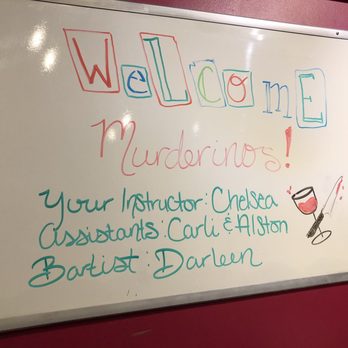 WeLcomE
Murderino's!
Your Instructor: Chelsea
Assistants: Carli & Alston
Bartist: Darleen